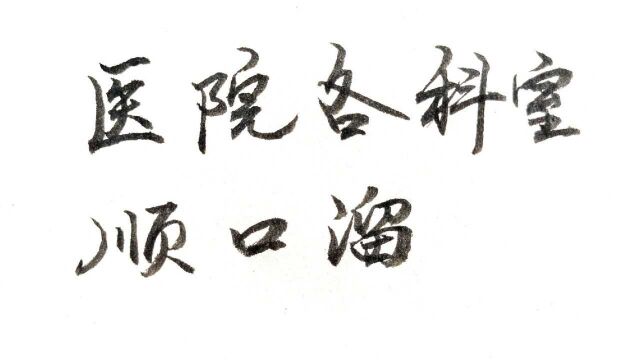 医院各科室
顺口溜